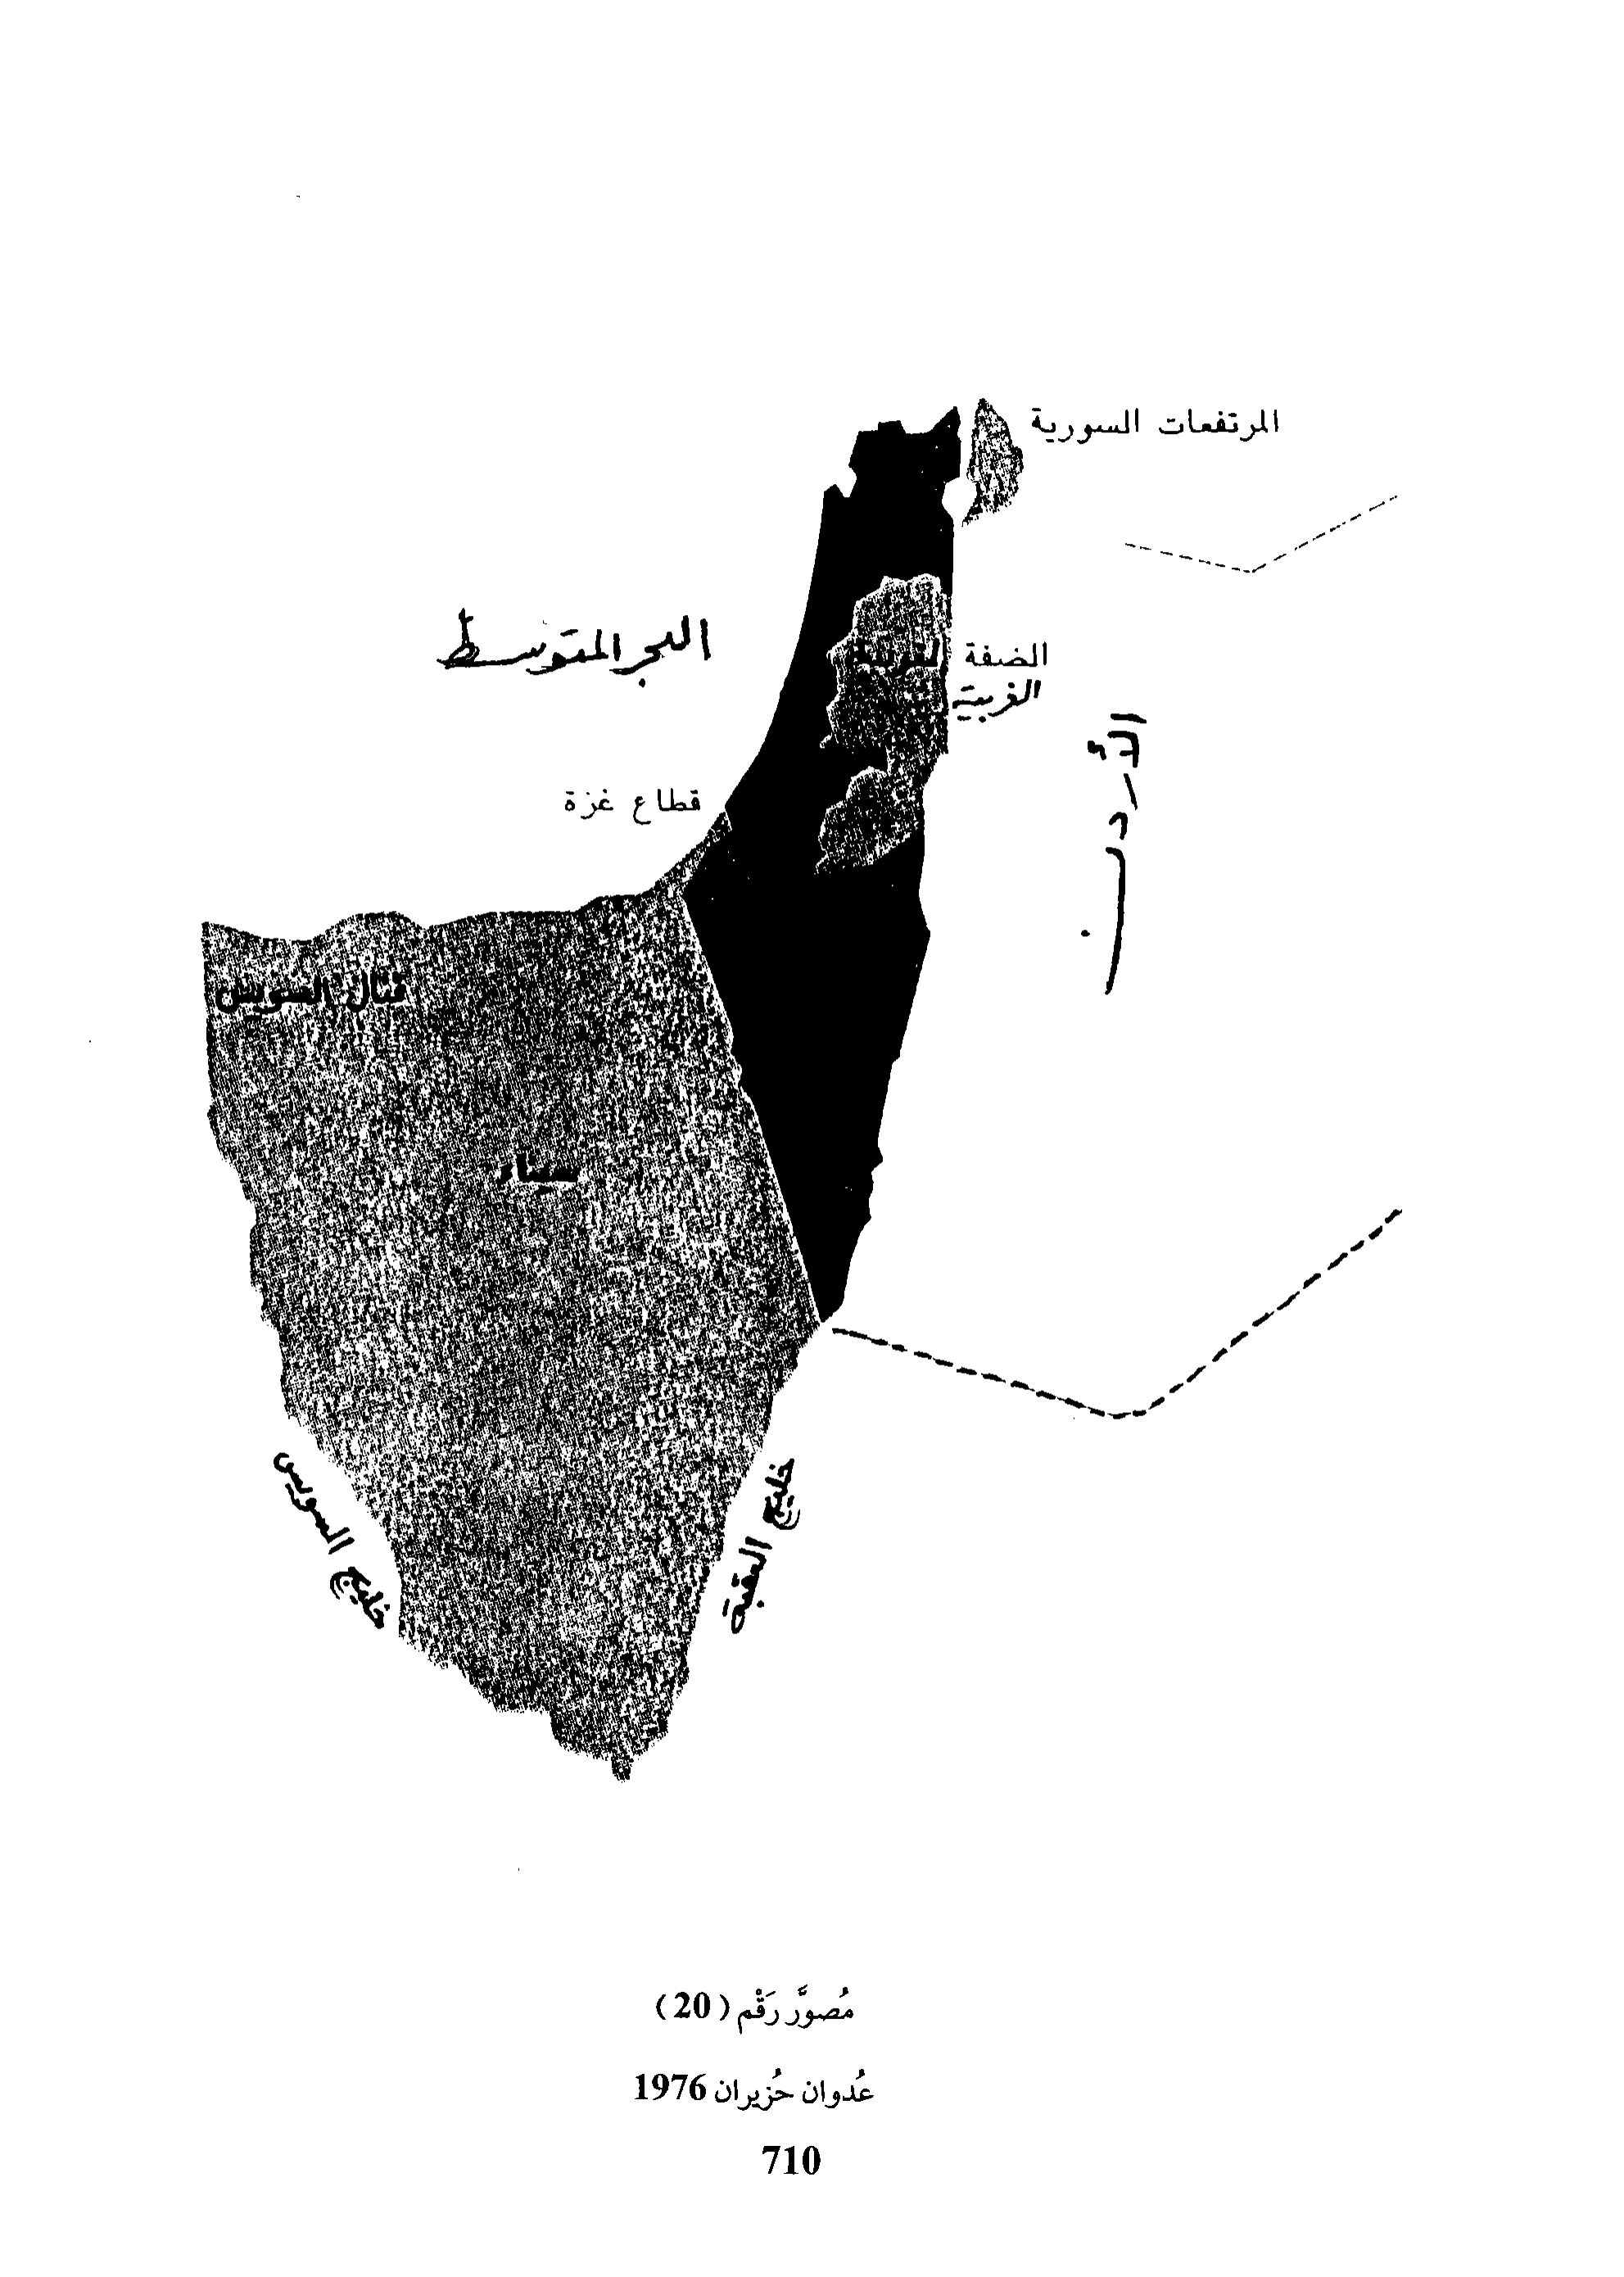 المرتفعات السورية
البحر المتوسط
الضفة الغربية
الغربية
الأردن
قطاع غزة
قناة السويس
سيناء
خليج السويس
خليج العقبة
مُصوَّر رَقْم (20)
عُدوان حُزيران 1976
710